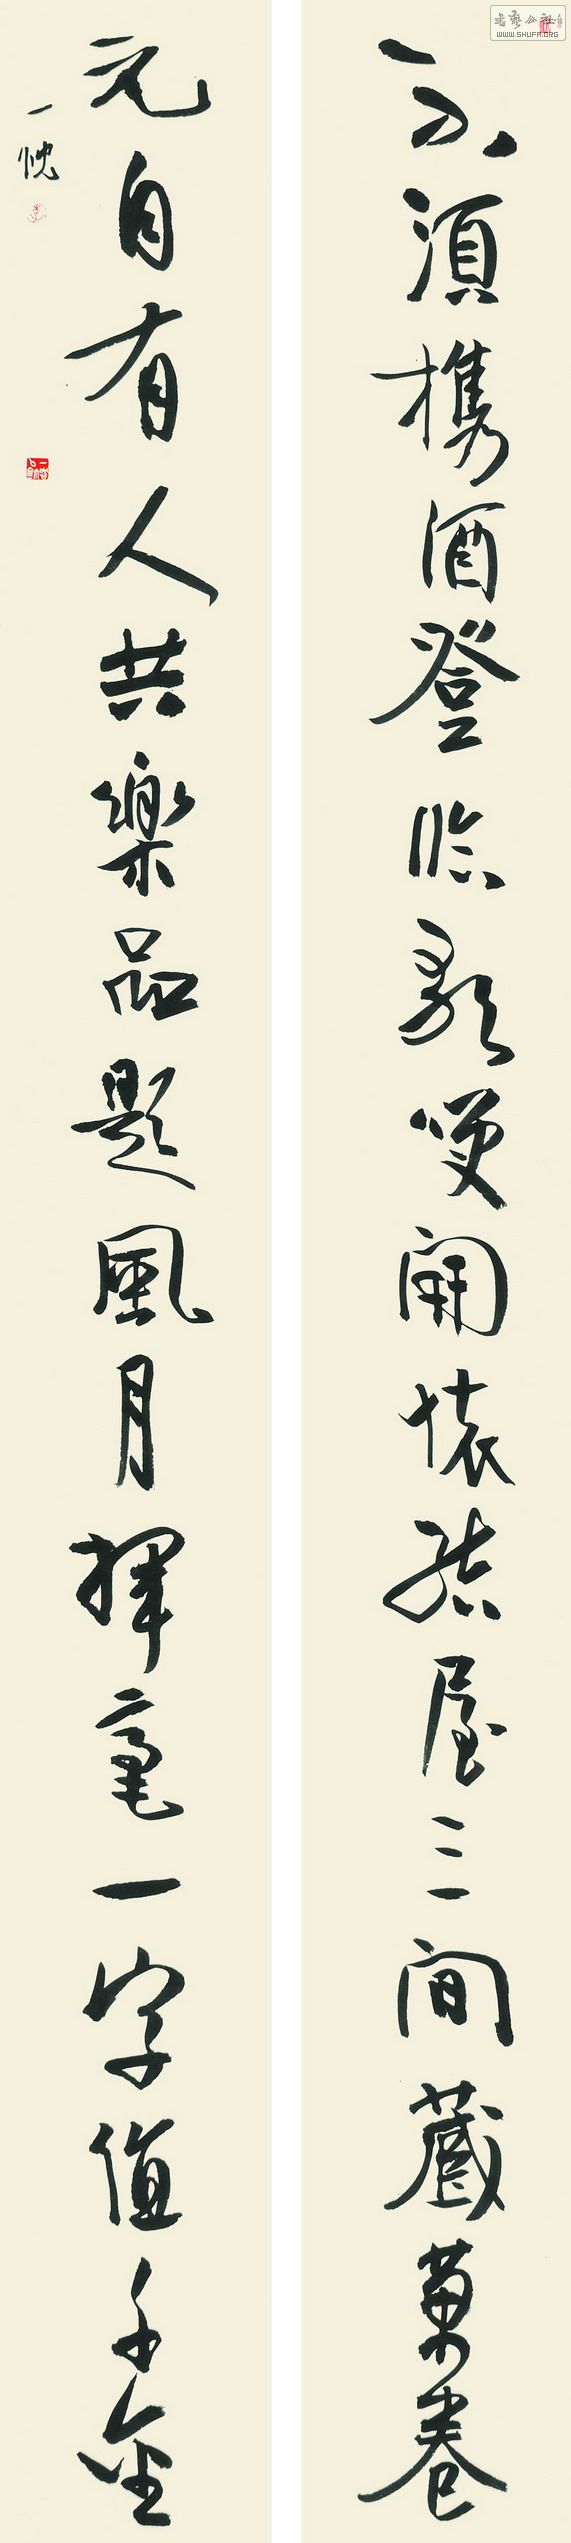 書藝公社
WWW.SHUFA.ORG
不須携酒登臨歡咲開懷結屋三間藏萬卷
元自有人共樂品題風月揮毫一字值千金
一忱